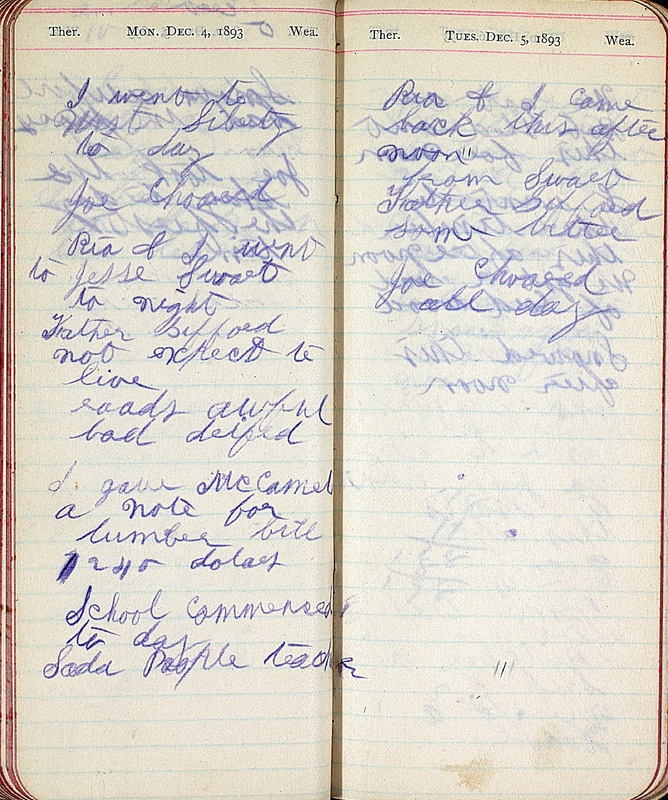 Ther. MON. DEC. 4, 1893 Wea.
I went to
West Liberty
to day
Joe Choared
Ria & I went
to Jesse Swart
to night
Father Gifford
not expect to
live
roads awful
bad
I gave McCamel
a note for
lumber bill
dolars
School Commensed
to day
teacher
Ther. TUES. DEC. 5, 1893 Wea.
Ria & I Came
back this after
noon
from Swart
Father Gifford
som better
Joe Choared
all day